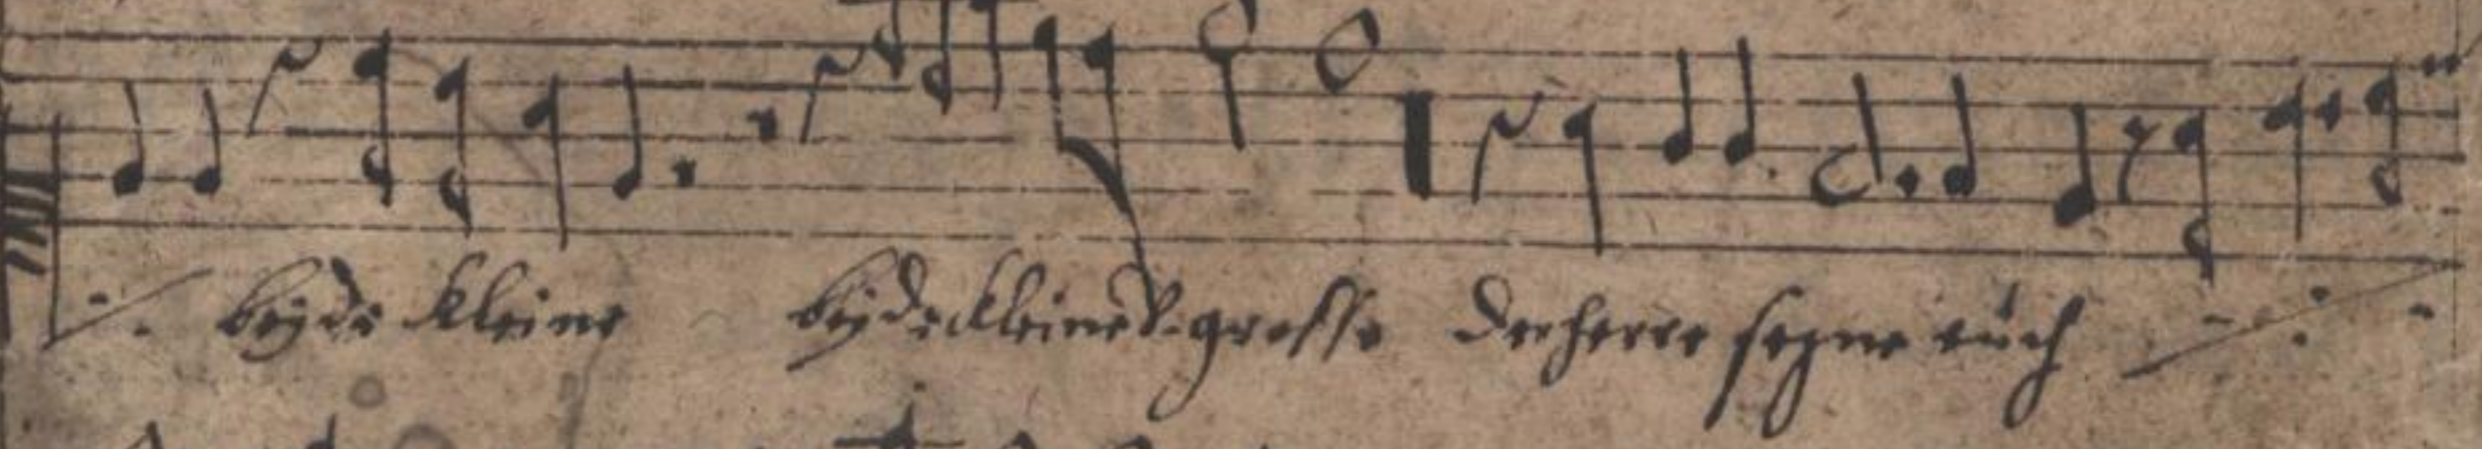 ·/· beyde kleine beyde kleine v. grosse Der herre segne euch ·/·